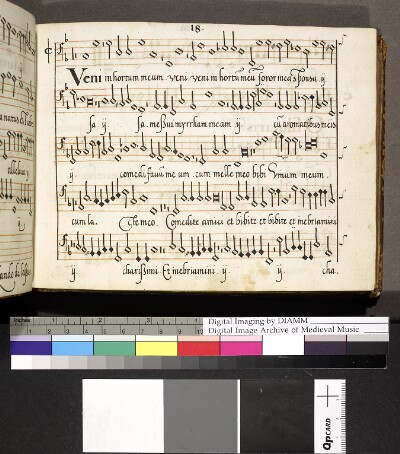 18.
Veni in hortum meum veni veni in hortũ meũ soror mea sponsa ij
sa ij sa. messui myrrham meam ij cũ aromatibus meis
ij. comedi fauũ me um. cum melle meo bibi Vinum meum.
cum la. cte meo. Comedite amici et bibite et bibite et inebriamini
ij charissimi Et inebriamini ij ij. cha.
alleluia ij
Inches 1 2 3
Digital Imaging by DIAMM
Digital Image Archive of Medieval Music
Qp CARD